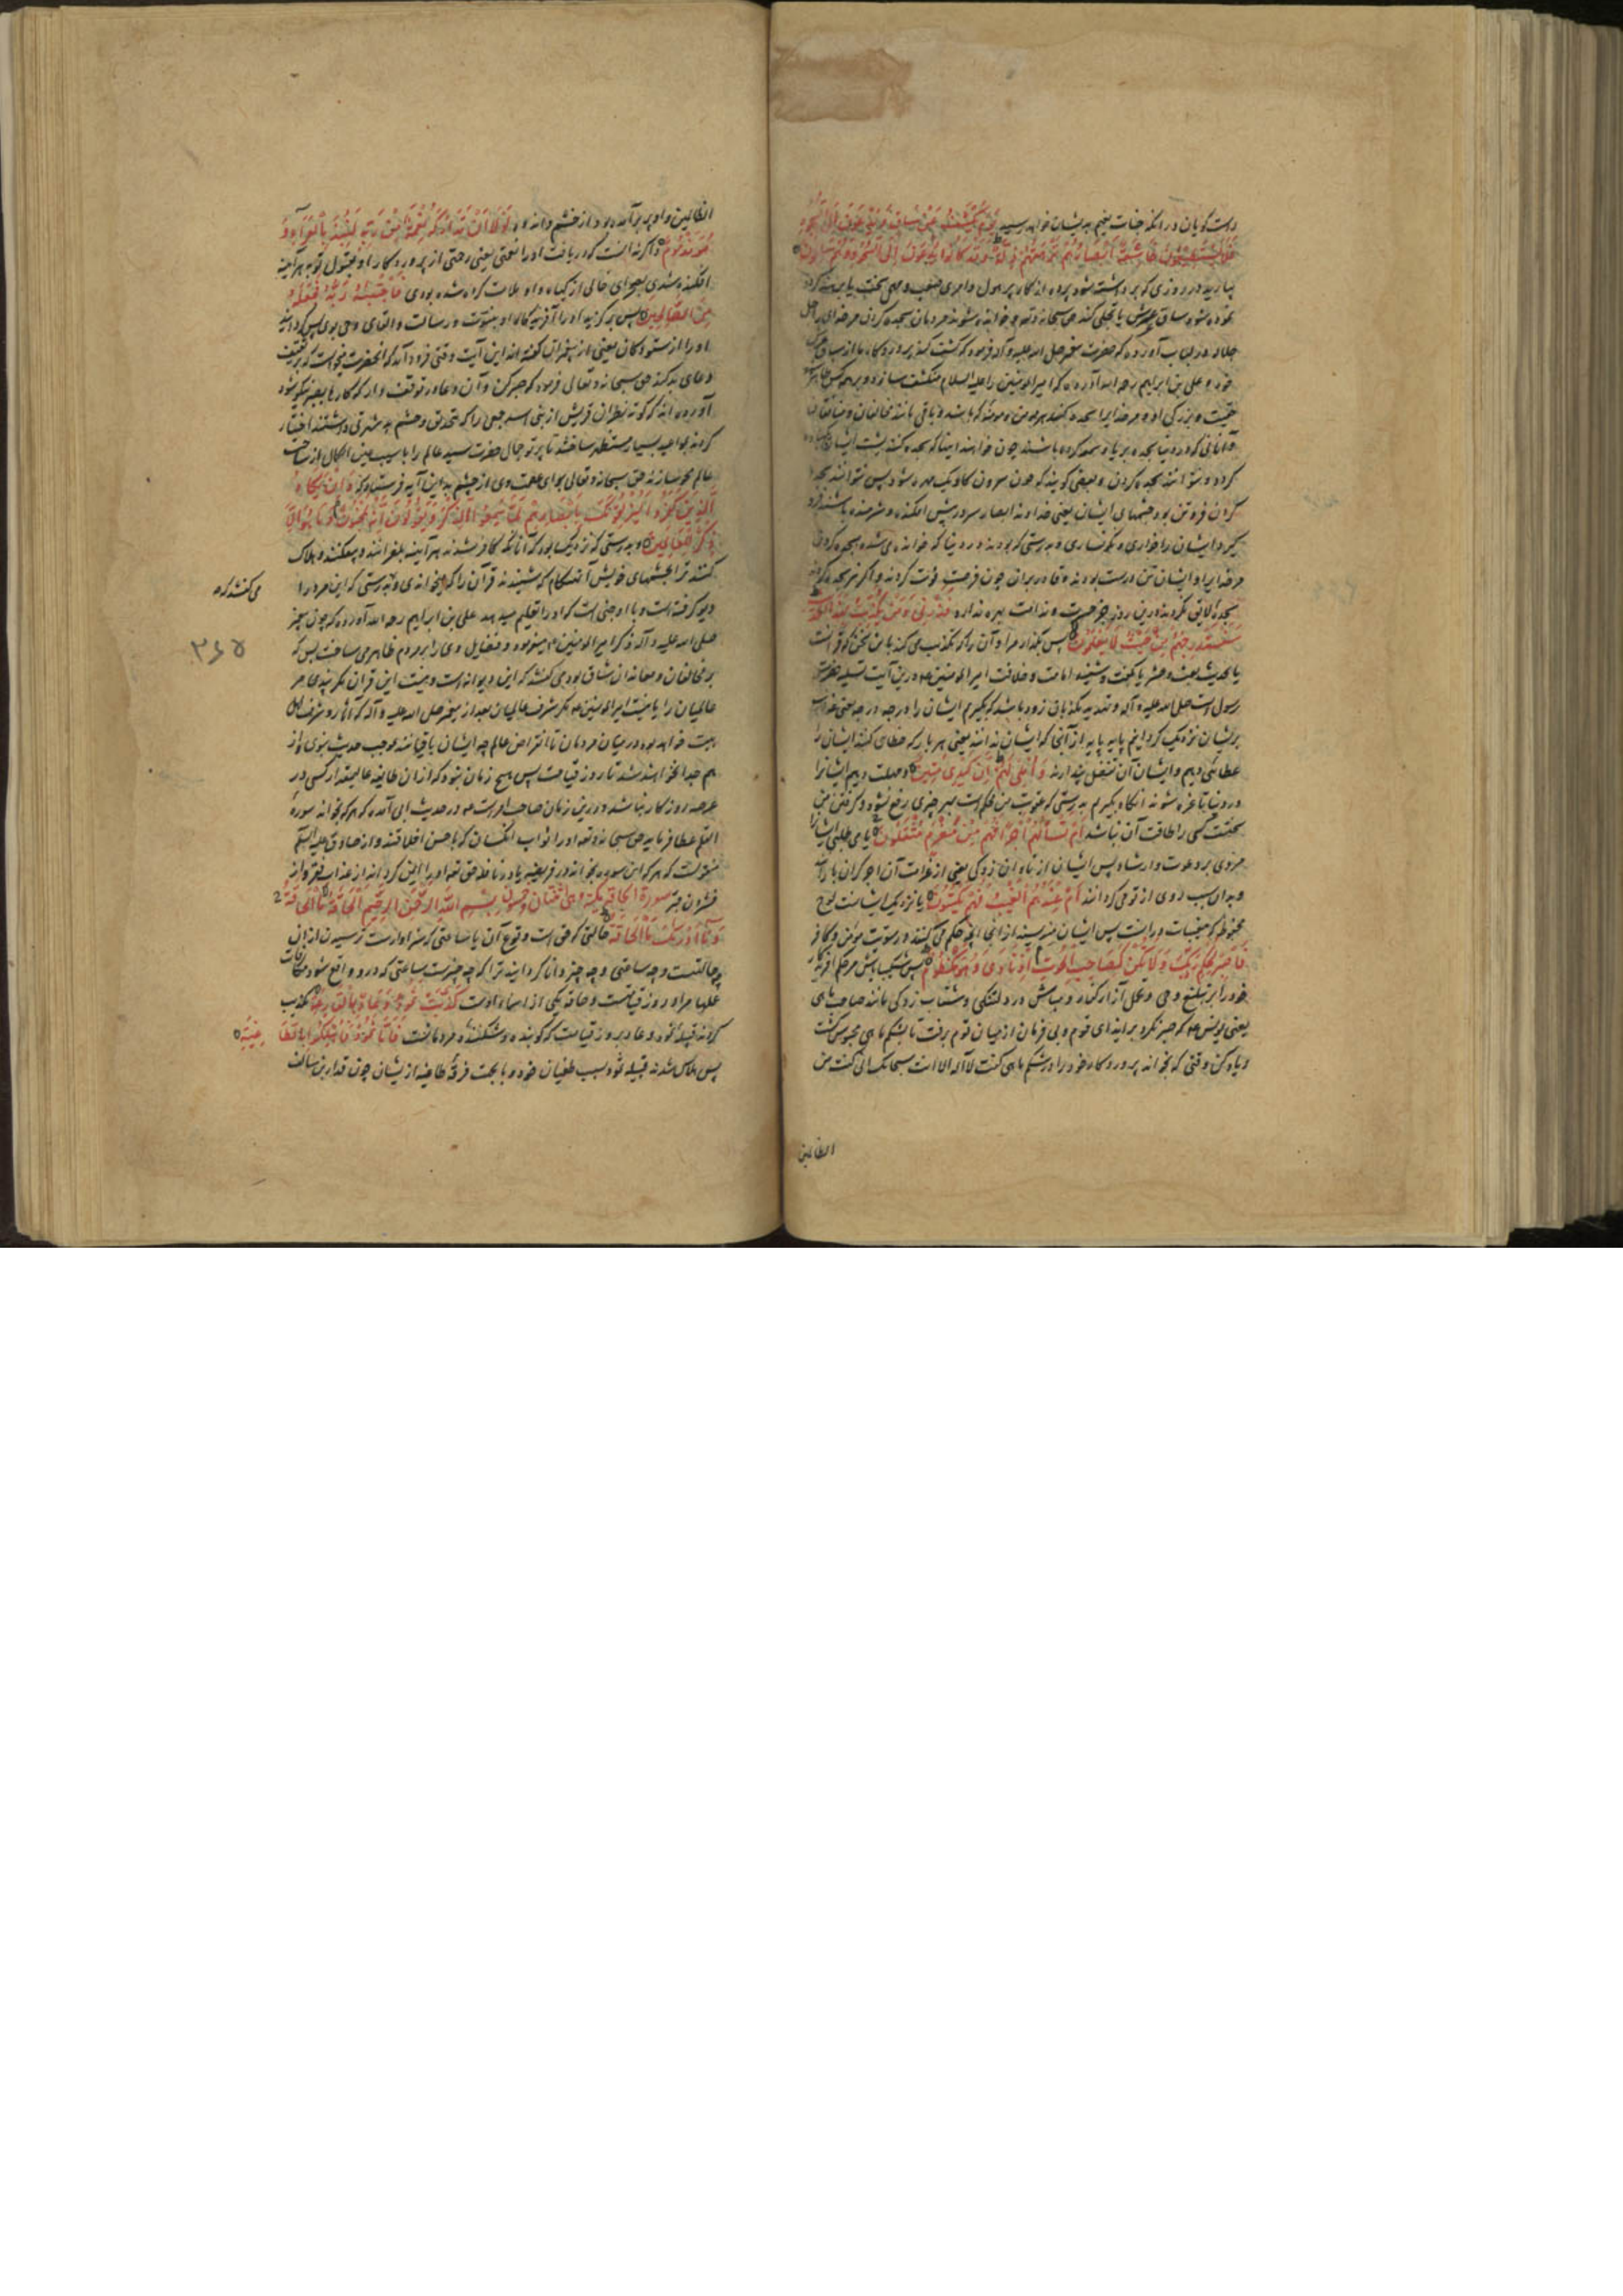 راست گویان در آنکه جنات نعیم بدیشان خواهد رسید یَوْمَ یُكْشَفُ عَنْ سَاقٍ وَیُدْعَوْنَ اِلَی السُّجُودِ
فَلَا یَسْتَطِیعُونَ خَاشِعَةً اَبْصَارُهُمْ تَرْهَقُهُمْ ذِلَّةٌ وَقَدْ كَانُوا یُدْعَوْنَ اِلَی السُّجُودِ وَهُمْ سَالِمُونَ
بیارید در روزی که برداشته شود پرده از کار پر هول و امری صعب و سختی
نموده شود ساق عرش یا تجلی کند حق سبحانه و خوانده شوند مردمان بسجده کردن مر خدای را
در لباب آورده که حضرت پیغمبر صلی الله علیه و آله فرمود که کشف کند پروردگار ما از ساق عرش
خود و علی بن ابراهیم رحمه الله آورده که امیر المومنین را علیه السلام منکشف سازد و بر همه کس ظاهر
حقیت و بزرگی او و مر خدایرا سجده کنند هر مومن و مومنه که باشد و باقی مانند مخالفان و منافقان
و آنانی که در دنیا سجده بریا و سمعه کرده باشند چون خواهند اینها که سجده کنند پشت ایشان
گردد و نتوانند سجده کردن و بعضی گویند که چون سرون گاو یک مهره شود پس نتوانند سجده
کردن فروتن بود چشمهای ایشان یعنی خداوند ابصار سر در پیش افکنده و شرمنده باشند
گیرد ایشان را خواری و نگونساری و بدرستی که بودند در دنیا که خوانده می شدند بسجده کردن
مر خدایرا و ایشان تن درست بودند و قادر بر آن چون فرصت فوت کردند و اگر نیز سجده کردند
سجدهٔ لایق نکردند درین روز جز حسرت و ندامت بهره ندارند فَذَرْنِی وَمَنْ یُكَذِّبُ بِهَذَا الْحَدِیثِ
سَنَسْتَدْرِجُهُمْ مِنْ حَیْثُ لَا یَعْلَمُونَ پس بگذار مرا و آن را که تکذیب می کند باین سخن که قرآنست
یا بحدیث بعث و حشر یا بگفت و شنید امامت و خلافت امیر المومنین ع و درین آیت تسلیه حضرت
رسول است صلی الله علیه و آله و تهدید مکذبان زود باشد که بگیریم ایشان را درجه درجه یعنی عذاب
بریشان نزدیک گردانیم پایه پایه از آنجا که ایشان ندانند یعنی هر بار که خطای کنند ایشان را
عطائی دهیم و ایشان آن تفضل پندارند وَاُمْلِی لَهُمْ اِنَّ كَیْدِی مَتِینٌ و مهلت دهیم ایشانرا
در دنیا تا غره شوند آنگاه بگیریم بدرستی که عقوبت من محکم است بهیچ چیزی رفع نشود و گرفتن من
سختت کسی را طاقت آن نباشد اَمْ تَسْأَلُهُمْ اَجْرًا فَهُمْ مِنْ مَغْرَمٍ مُثْقَلُونَ یا می طلبی ایشانرا
مزدی بر دعوت و ارشاد پس ایشان از تاوان زدگی یعنی از غرامت آن اجر گران بارند
و بدان سبب روی از تو می گردانند اَمْ عِنْدَهُمُ الْغَیْبُ فَهُمْ یَكْتُبُونَ یا نزدیک ایشانست لوح
محفوظ که مغیبات در آنست پس ایشان می نویسند از آنجا آنچه حکم می کنند در سویت مومن و کافر
فَاصْبِرْ لِحُكْمِ رَبِّكَ وَلَا تَكُنْ كَصَاحِبِ الْحُوتِ اِذْ نَادَی وَهُوَ مَكْظُومٌ پس شکیبا باش مر حکم آفریدگار
خود را بر تبلیغ وحی و تحمل آزار کفار و مباش در دلتنگی و شتاب زدگی مانند صاحب ماهی
یعنی یونس ع که صبر نکرد بر ایذای قوم و بی فرمان از میان قوم برفت تا بشکم ماهی محبوس گشت
و یاد کن وقتی که بخواند پروردگار خود را در شکم ماهی گفت لا اله الا انت سبحانک انی کنت من
الظالمین
الظالمین و او پر برآمده بود از خشم و اندوه لَوْلَا اَنْ تَدَارَكَهُ نِعْمَةٌ مِنْ رَبِّهِ لَنُبِذَ بِالْعَرَاءِ وَ
هُوَ مَذْمُومٌ و اگر نه آنست که دریافت او را نعمتی یعنی رحمتی از پروردگار او بقبول توبه هر آینه
افکنده شدی بصحرای خالی از گیاه و او ملامت کرده شده بودی فَاجْتَبَاهُ رَبُّهُ فَجَعَلَهُ
مِنَ الصَّالِحِینَ پس برگزید او را آفریدگار او بنبوّت و رسالت و القای وحی بوی پس گردانید
او را از ستودگان یعنی از پیغمبران گفته اند این آیت وقتی فرود آمد که آنحضرت میخواست که بر ثقیف
دعای بد کند حق سبحانه و تعالی فرمود که صبر کن و آن دعا در توقف دار که کارها بصبر نیکو شود
آورده اند که کوته نظران قریش از بنی اسد جمعی را که بتحدیق چشم بد شهرتی داشتند اختیار
کردند بمواعید بسیار مستظهر ساختند تا پرتو جمال حضرت سید عالم را بآسیب عین الکمال از ساحت
عالم محو سازند حق سبحانه و تعالی برای عصمت وی از چشم بد این آیه فرستاد که وَاِنْ یَكَادُ
الَّذِینَ كَفَرُوا لَیُزْلِقُونَكَ بِاَبْصَارِهِمْ لَمَّا سَمِعُوا الذِّكْرَ وَیَقُولُونَ اِنَّهُ لَمَجْنُونٌ وَمَا هُوَ اِلَّا
ذِكْرٌ لِلْعَالَمِینَ و بدرستی که نزدیک بود که آنانکه کافر شدند هر آینه بلغزانند و بیفکنند و هلاک
کنند ترا بچشمهای خویش آن هنگام که شنیدند قرآن را که میخواندی و بدرستی که این مرد را
می گفتند که
دیو گرفته است و با او جنی است که او را تعلیم میدهد علی بن ابراهیم رحمه الله آورده که چون پیغمبر
صلی الله علیه و آله ذکر امیر المومنین ع میفرمود و فضایل وی را بر مردم ظاهر می ساخت پس که
۳۶۵
بر مخالفان و معاندان شاق بود می گفتند که این دیوانه است و نیست این قرآن مگر پندی مر
عالمیان را یا نیست امیر المومنین ع مگر شرف عالمیان بعد از پیغمبر صلی الله علیه و آله که آثار و شرف اهل
بیت خواهد بود در میان مردمان تا انقراض عالم چه ایشان باقیاند بموجب حدیث نبوی و از
هم جدا نخواهند شد تا روز قیامت پس هیچ زمان نبود که از آن طایفه عالیمقدار کسی در
عرصه روزگار نباشد و درین زمان صاحب الامرست ع و در حدیث ابی آمده که هر که بخواند سورهٔ
القلم عطا فرماید حق سبحانه و تعالی او را ثواب آنکسان که با حسن اخلاقند و از صادق علیه السلم
منقولست که هر که این سوره بخواند در فریضه یا در نافله حق تعالی او را ایمن گرداند از عذاب فقر و از
فشردن قبر سورة الحاقة مکیة وهی اثنتان وخمسون بِسْمِ اللَّهِ الرَّحْمَنِ الرَّحِیمِ اَلْحَاقَّةُ مَا الْحَاقَّةُ
وَمَا اَدْرٰیكَ مَا الْحَاقَّةُ حالتی که حق است وقوع آن یا ساعتی که سزاوارست ترسیدن از آن
چه حالتست و چه ساعتی و چه چیز دانا گردانید ترا که چه چیزست ساعتی که درو واقع شود مکافات
عملها مراد روز قیامت است و حاقه یکی از اسماء اوست كَذَّبَتْ ثَمُودُ وَعَادٌ بِالْقَارِعَةِ تکذیب
کردند قبیله ثمود و عاد بروز قیامت که کوبنده و شکننده مردمانست فَاَمَّا ثَمُودُ فَاُهْلِكُوا بِالطَّاغِیَةِ
پس هلاک شدند قبیله ثمود بسبب طغیان خود و یا بجهت فرقهٔ طاغیه ازیشان چون قدار بن سالف